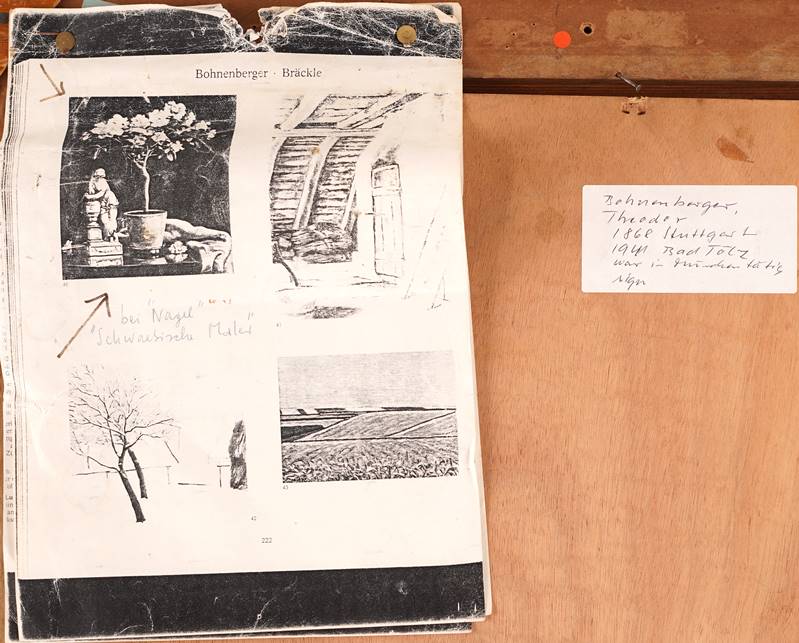 Bohnenberger · Bräckle
bei "Nagel"
"Schwäbische Maler"
41
42
43
222
Bohnenberger,
Theodor
1868 Stuttgart
1941 Bad Tölz
war in München tätig
sign